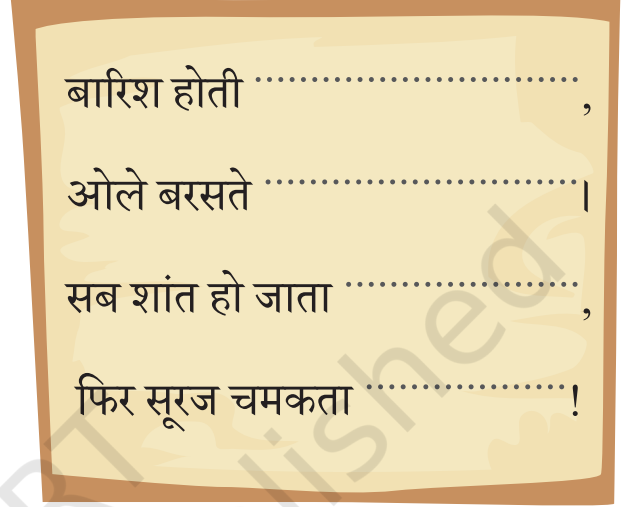 बारिश होती ............................,
ओले बरसते ............................।
सब शांत हो जाता .....................,
फिर सूरज चमकता ..................!